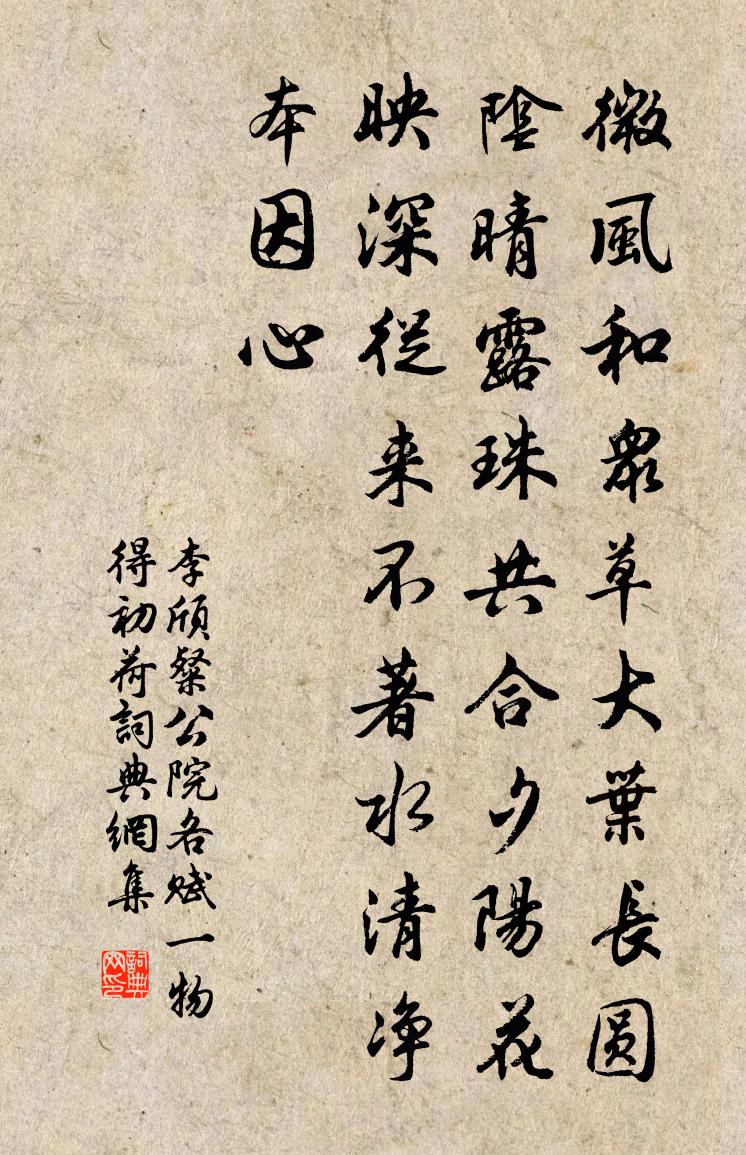 微風和眾草大葉長圓
陰晴露珠共合夕陽花
映深從来不著水清净
本因心
李頎粲公院各賦一物
得初荷詞典網集
詞典网印